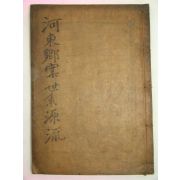 河東鄭氏世系源流